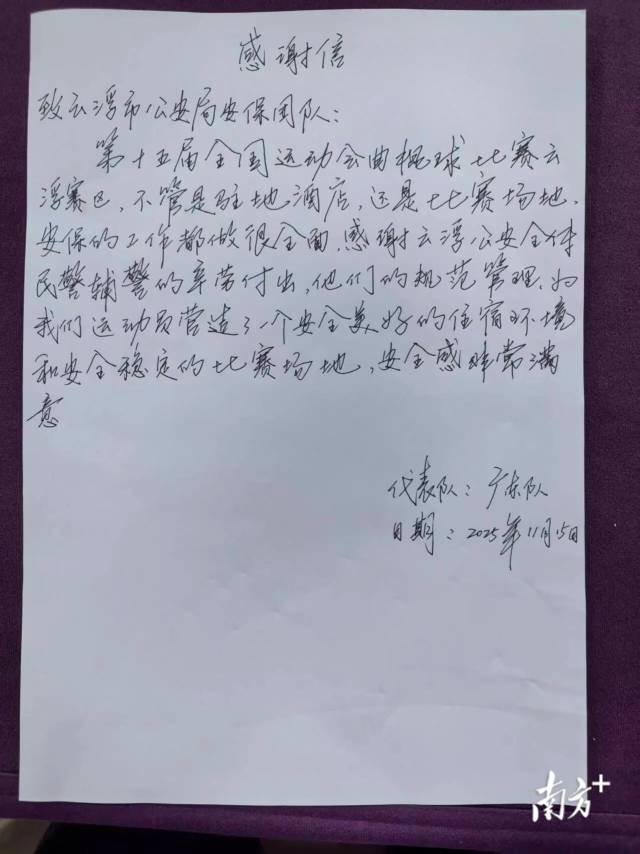 感谢信
致云浮市公安局安保团队：
第十五届全国运动会曲棍球比赛云
浮赛区，不管是驻地酒店，还是比赛场地，
安保的工作都做很全面，感谢云浮公安全体
民警辅警的辛劳付出，他们的规范管理，为
我们运动员营造了一个安全美好的住宿环境
和安全稳定的比赛场地，安全感非常满
意
代表队：广东队
日期：2025年11月15日
南方+